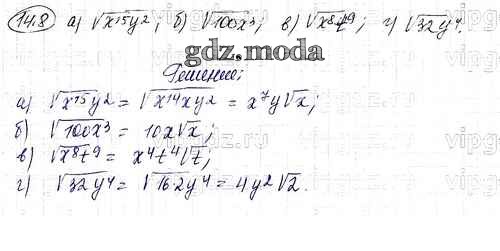 14.8 а) √x¹⁵y²; б) √100x³; в) √x⁸t⁹; г) √32y⁴.
gdz.moda
Решение:
а) √x¹⁵y² = √x¹⁴xy² = x⁷y√x;
б) √100x³ = 10x√x;
в) √x⁸t⁹ = x⁴t⁴√t;
г) √32y⁴ = √16·2y⁴ = 4y²√2.